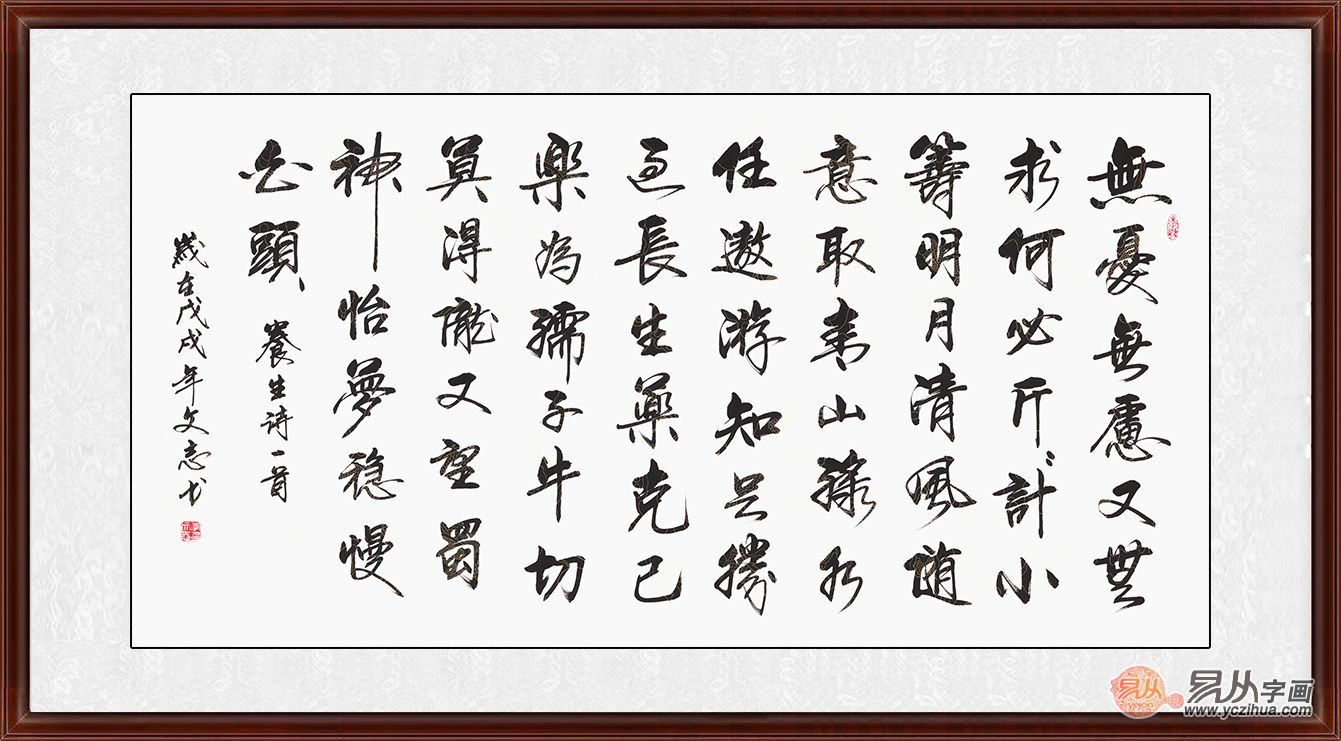 無憂無慮又無
求何必斤斤計小
籌明月清風随
意取青山緑水
任遨游知足勝
過長生藥克己
樂為孺子牛切
莫得隴又望蜀
神怡夢稳慢
白頭 養生诗一首
歲在戊戌年文志书
易从
yejon
易从字画
www.yczihua.com